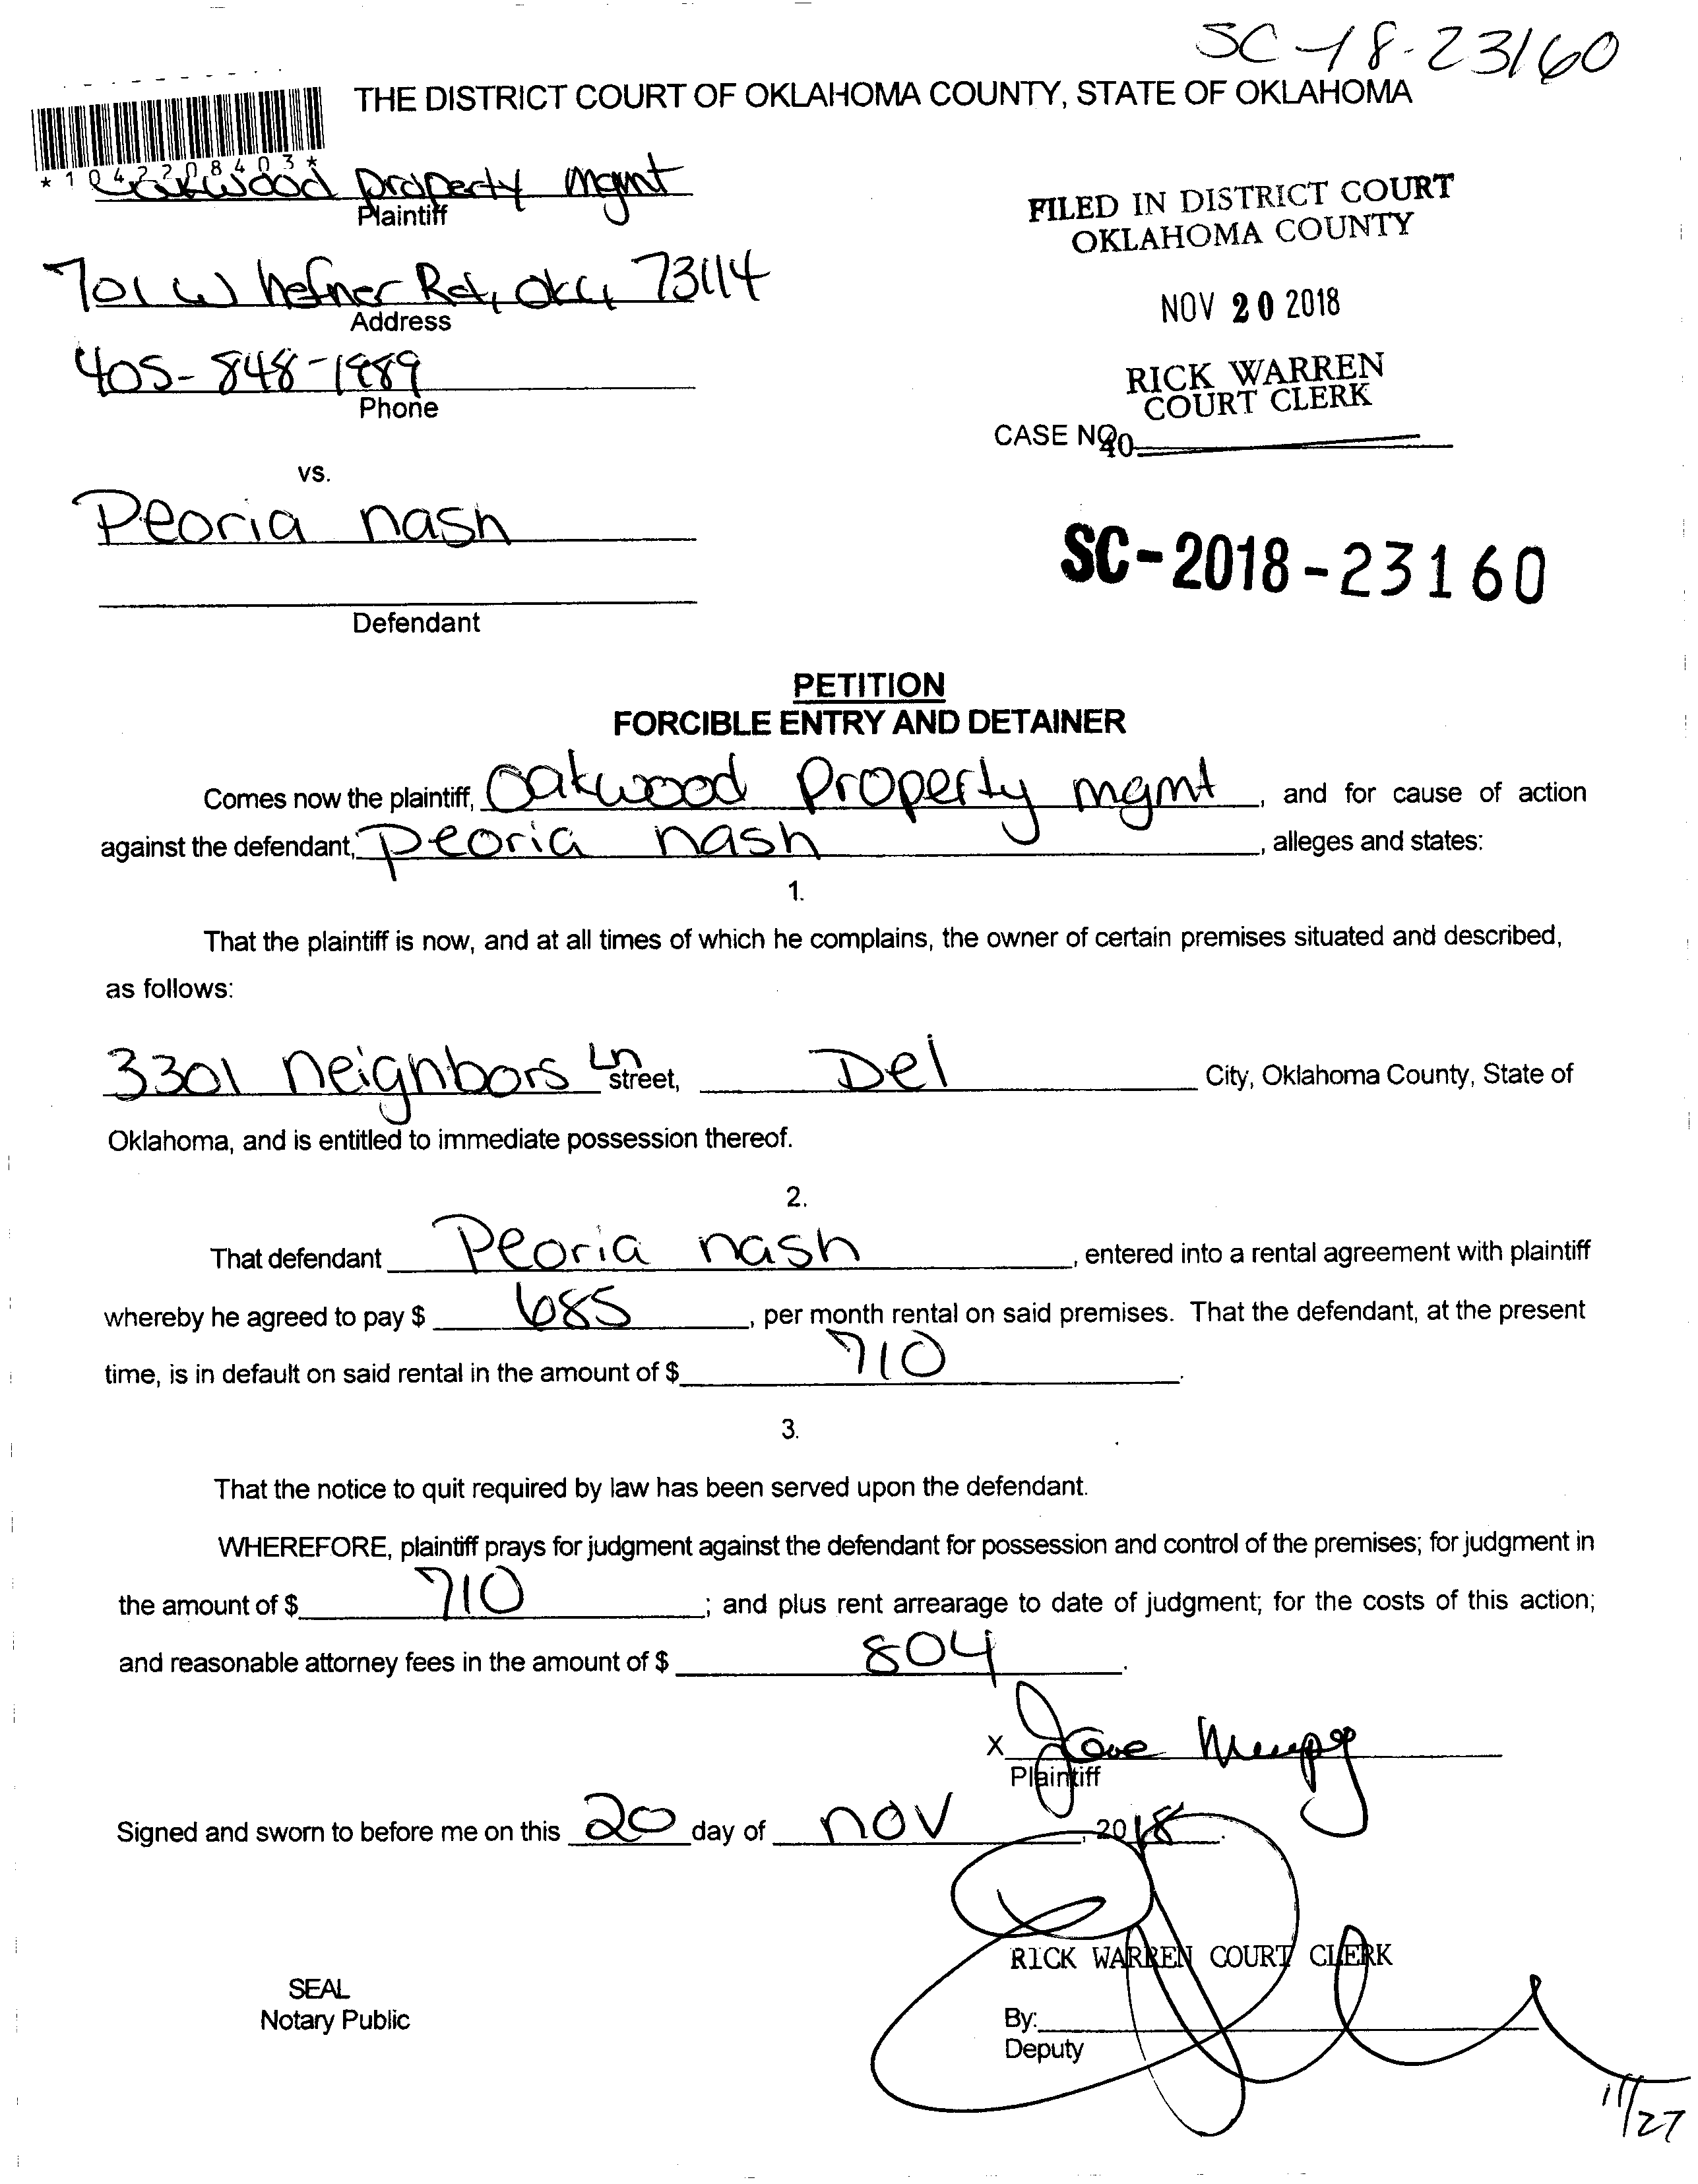 SC-18-23160
THE DISTRICT COURT OF OKLAHOMA COUNTY, STATE OF OKLAHOMA
*1042208403*
Oakwood property mgmt
Plaintiff
FILED IN DISTRICT COURT
OKLAHOMA COUNTY
701 W hefner Rd, OKC, 73114
Address
NOV 20 2018
405-848-1989
Phone
RICK WARREN
COURT CLERK
CASE NO.
40
vs.
Peoria nash
SC-2018-23160
Defendant
PETITION
FORCIBLE ENTRY AND DETAINER
Comes now the plaintiff, Oakwood Property mgmt, and for cause of action
against the defendant, Peoria nash, alleges and states:
1.
That the plaintiff is now, and at all times of which he complains, the owner of certain premises situated and described,
as follows:
3301 neighbors Ln street, Del City, Oklahoma County, State of
Oklahoma, and is entitled to immediate possession thereof.
2.
That defendant Peoria nash, entered into a rental agreement with plaintiff
whereby he agreed to pay $ 685, per month rental on said premises. That the defendant, at the present
time, is in default on said rental in the amount of $ 710.
3.
That the notice to quit required by law has been served upon the defendant.
WHEREFORE, plaintiff prays for judgment against the defendant for possession and control of the premises; for judgment in
the amount of $ 710; and plus rent arrearage to date of judgment; for the costs of this action;
and reasonable attorney fees in the amount of $ 804.
X
Plaintiff
Signed and sworn to before me on this 20 day of nov, 2018.
RICK WARREN COURT CLERK
SEAL
Notary Public
By:
Deputy
11/27